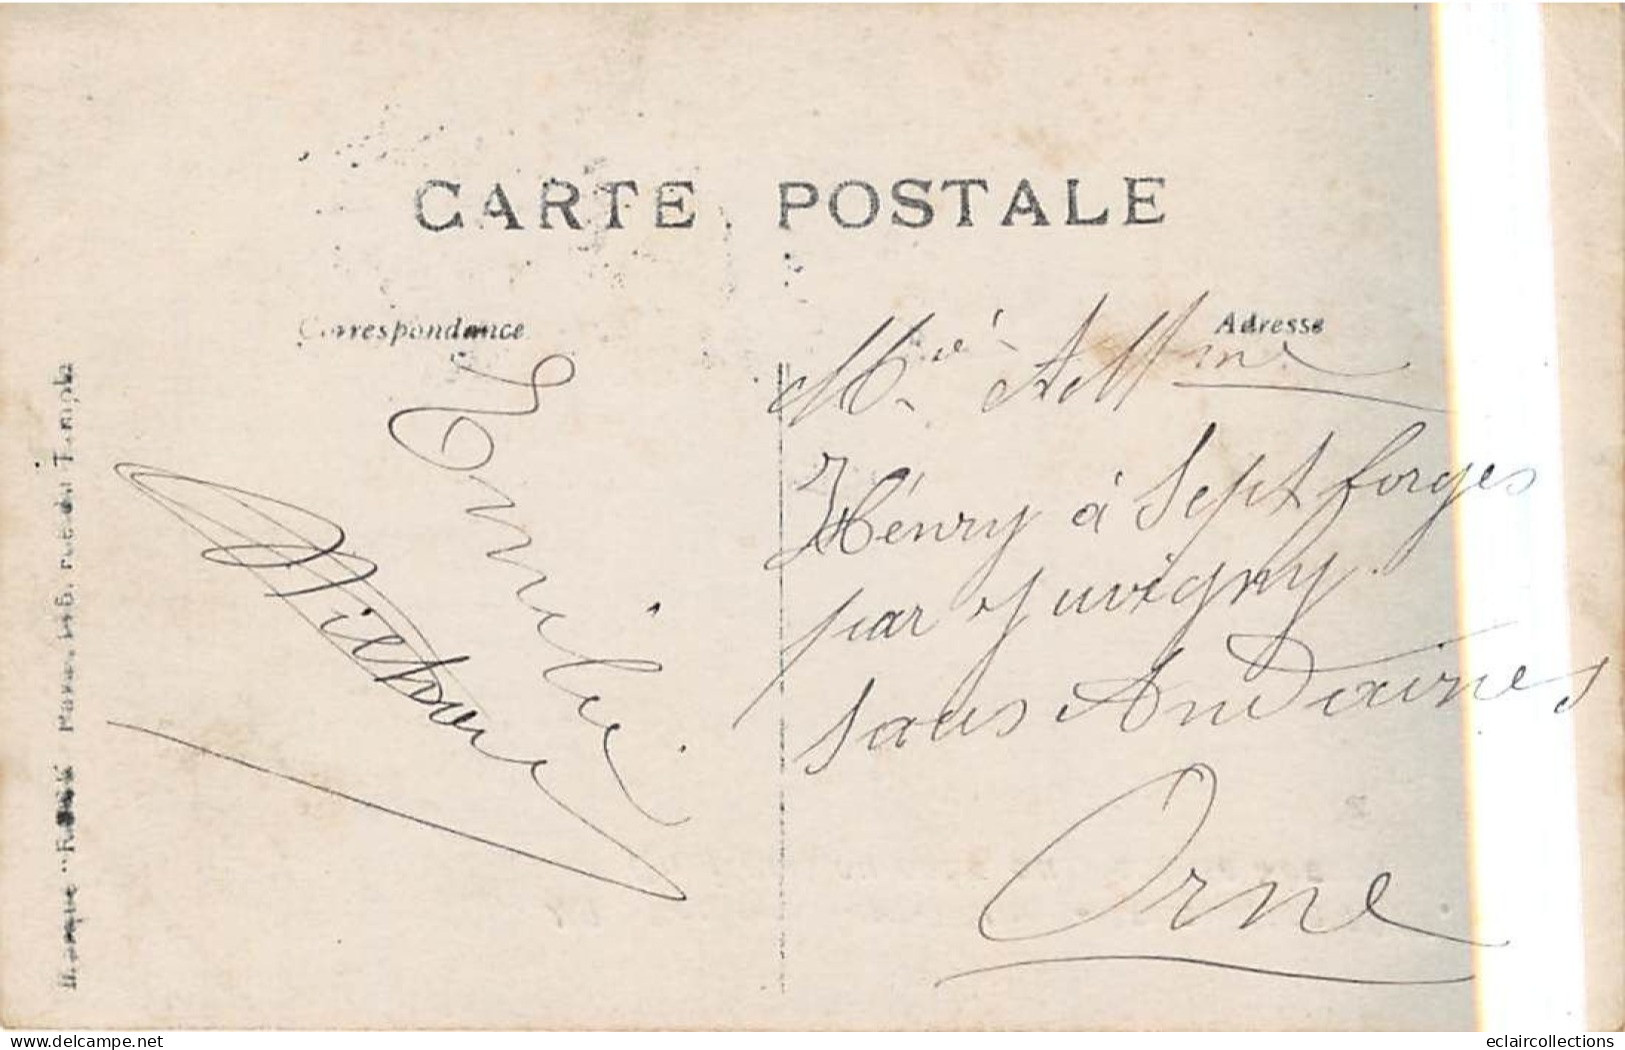 CARTE POSTALE
Correspondance
Adresse
Emilie
Mr. et Mme
Hénry à Sept forges
par Juvigny
sous Andaines
Orne
Marque "Rex" Paris, 146, rue du Temple
delcampe.net
eclaircollections